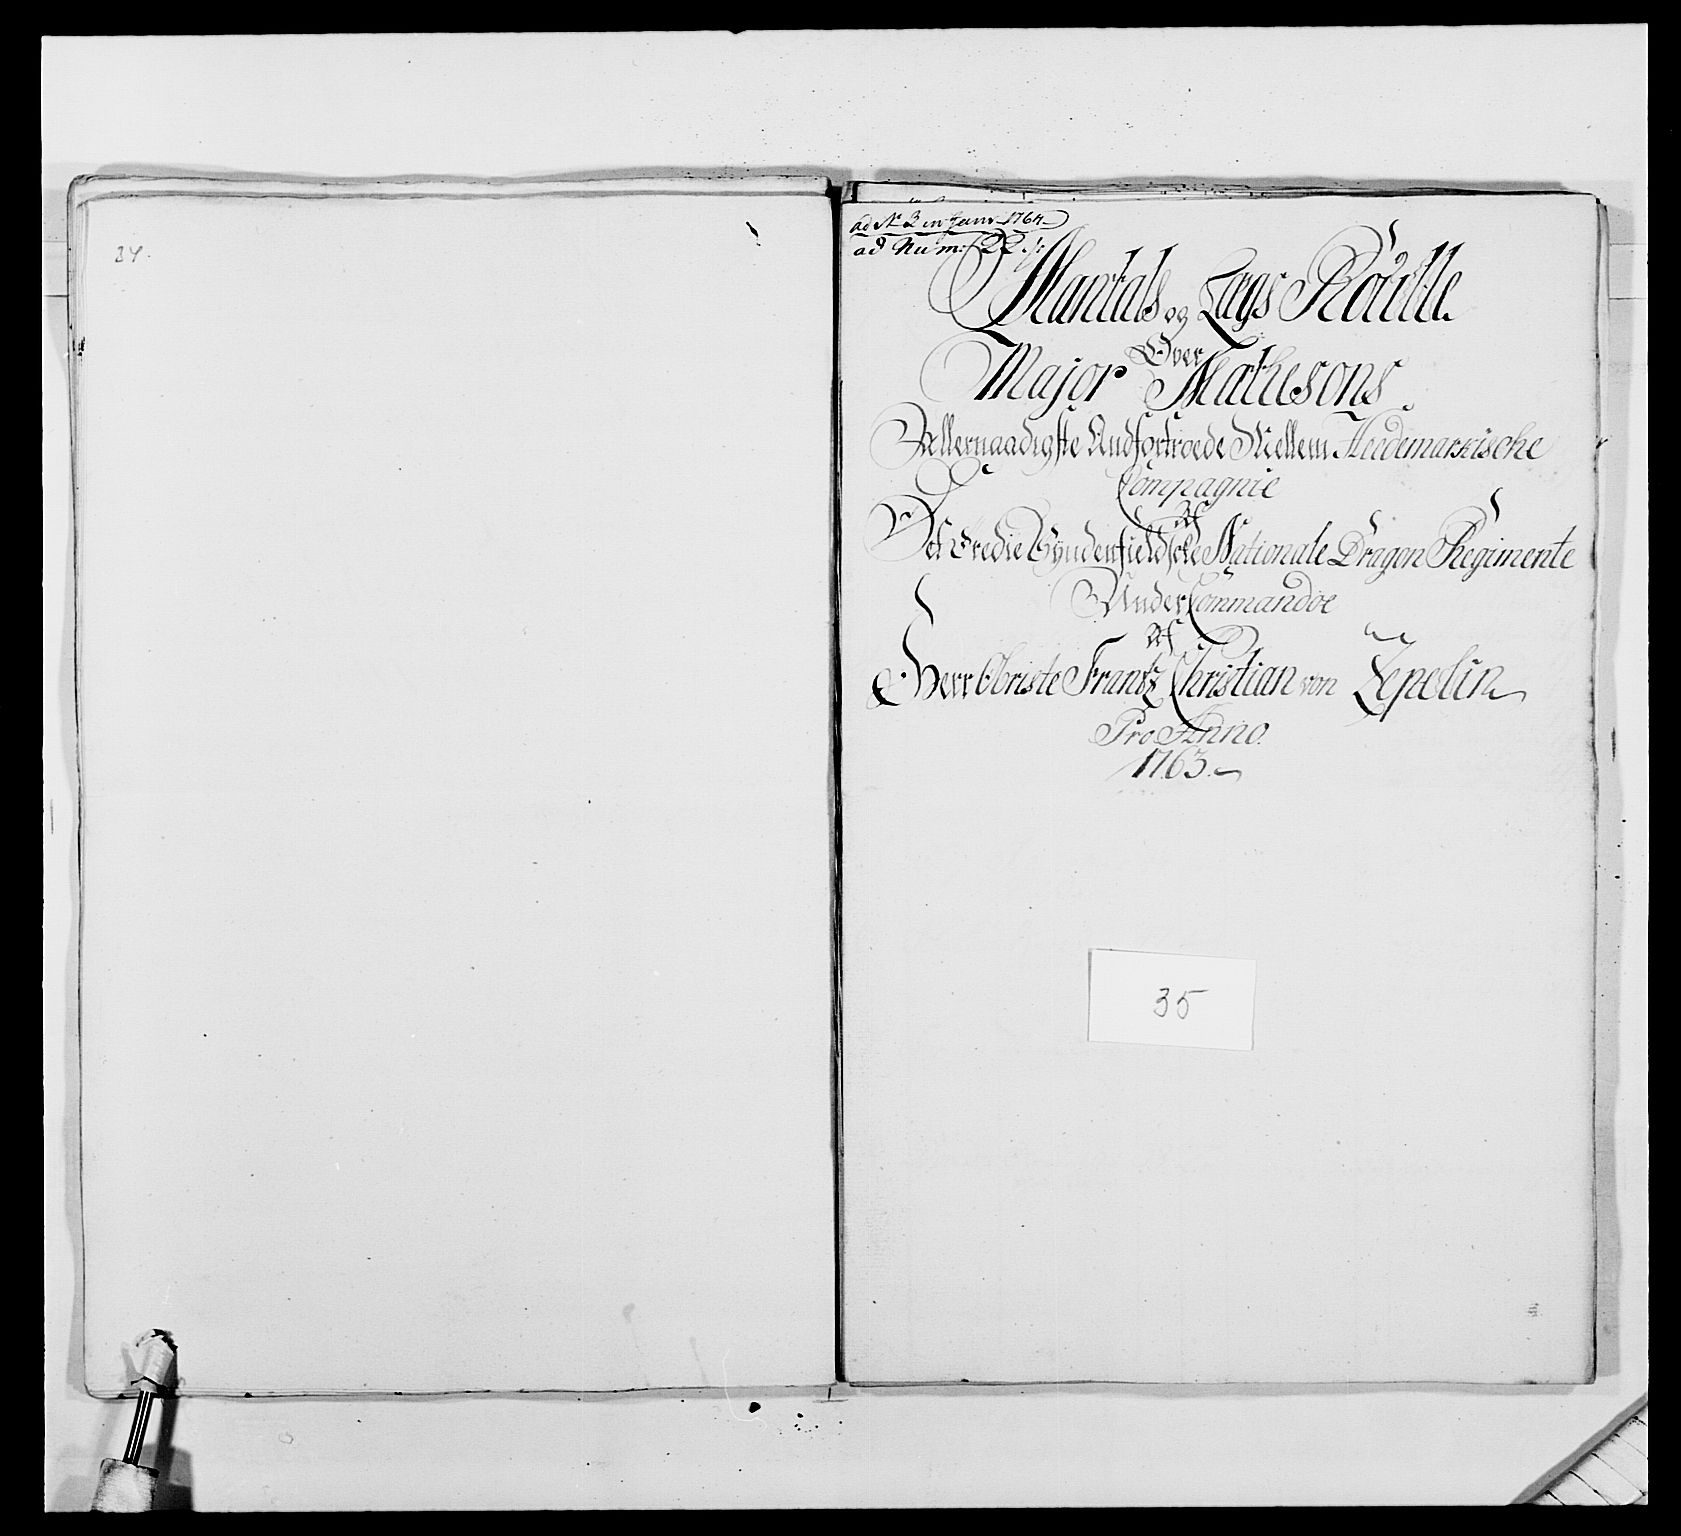 34.
ad No 3 in Janr 1764
ad Num: 22
Mantals og Lægs Roulle
Over
Major Mathesons
Allernaadigste Andfortroede Mellem Heedemarkische
Compagnie
Af
Det Tredie Synderfieldske Nationale Dragon Regimente
Under Commandoe
Af
Herr Obriste Frantz Christian von Zepelin
Pro Anno
1763.
35